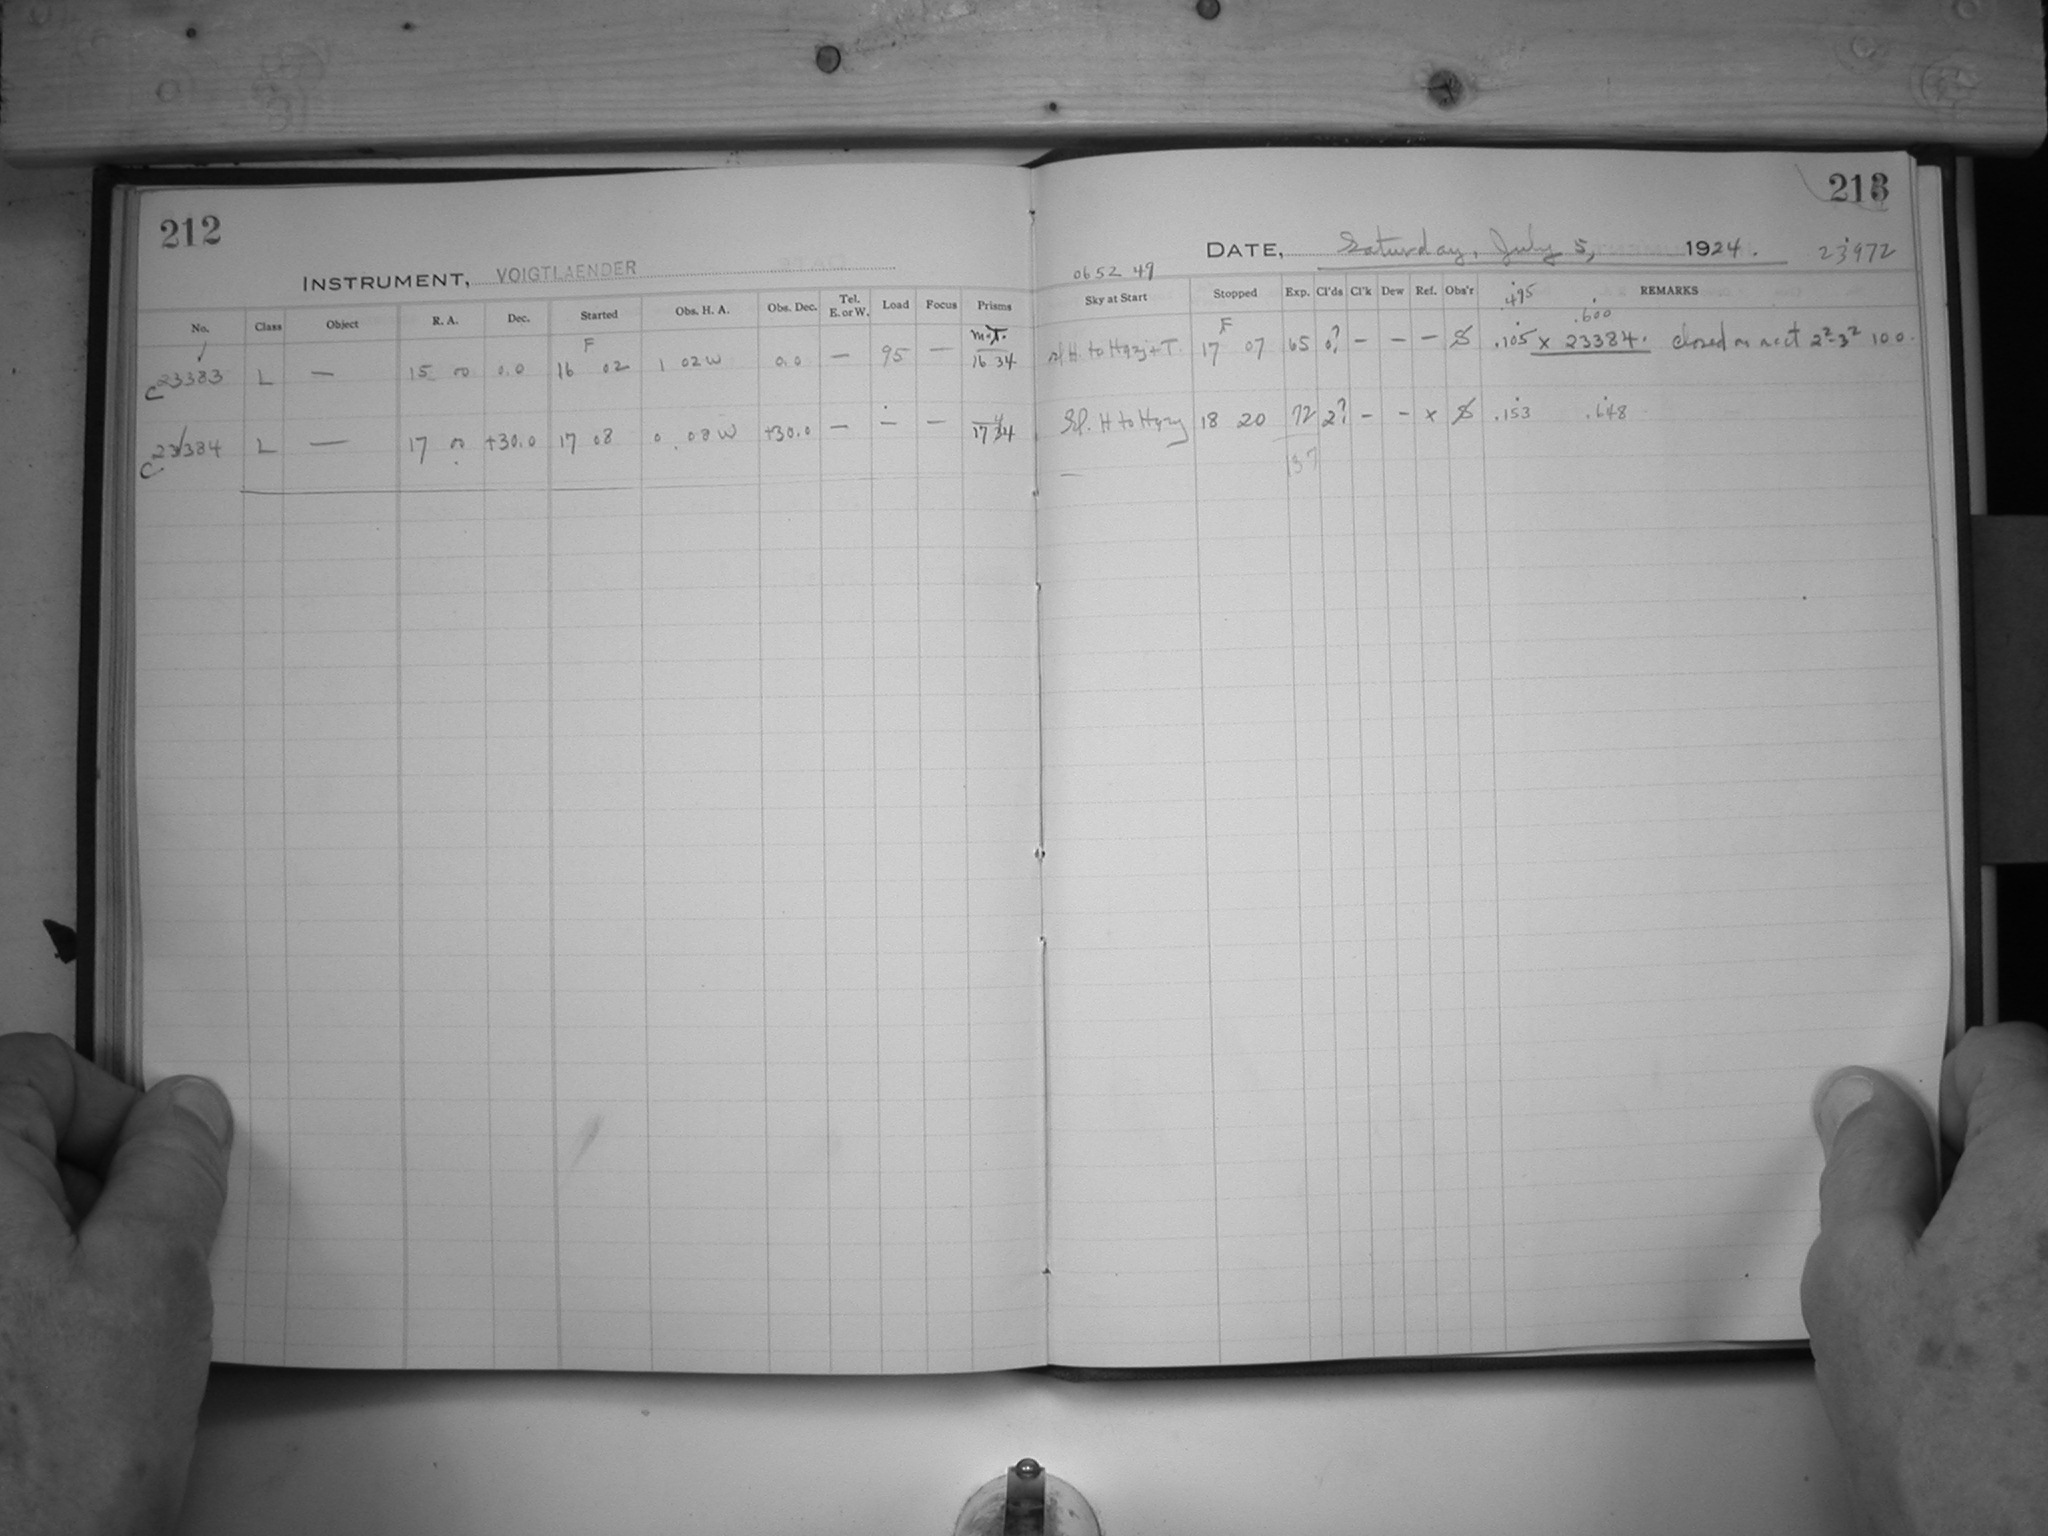 212
INSTRUMENT, VOIGTLAENDER
No. Class Object R. A. Dec. Started Obs. H. A. Obs. Dec. Tel. E. or W. Load Focus Prisms
F M.T.
C 23383 L — 15 00 0.0 16 02 1 02 W 0.0 — 95 — 16 34
C 23384 L — 17 00 +30.0 17 08 0 08 W +30.0 — — — 17 34
213
DATE, Saturday, July 5, 1924. 23972
06 52 49
Sky at Start Stopped Exp. Cl'ds Cl'k Dew Ref. Obs'r REMARKS
.495
F .600
H. to Hazy + T. 17 07 65 0? — — — S .105 x 23384. closed on acct 2²-3² 100.
Sl. H to Hazy 18 20 72 2? — — x S .153 .648
— 137